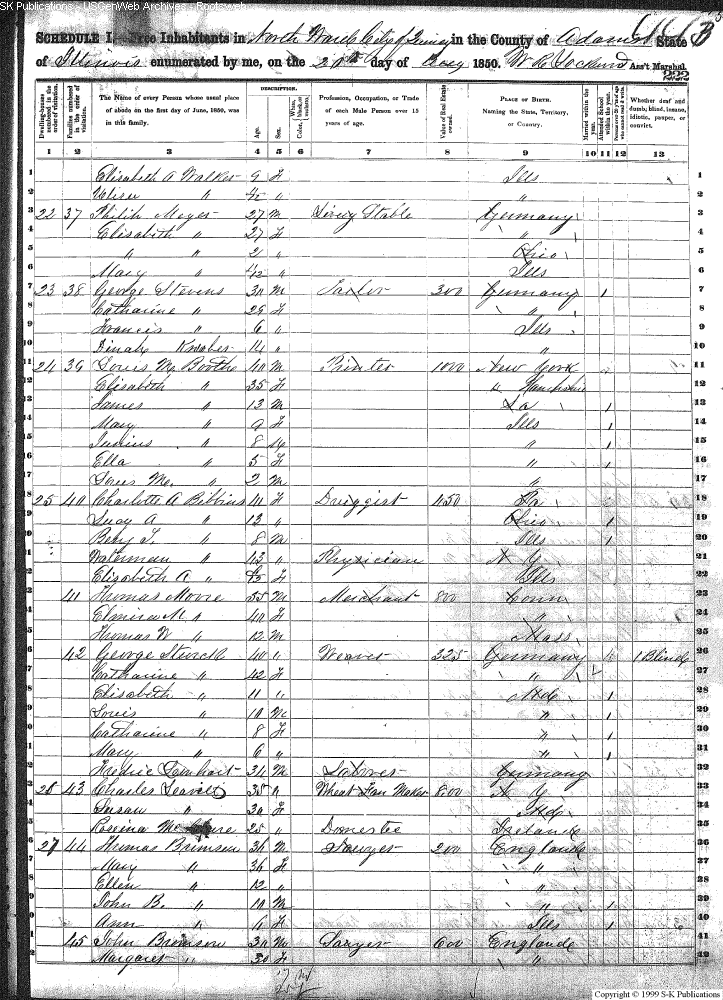 SK Publications - USGenWeb Archives - Rootsweb
SCHEDULE I.—Free Inhabitants in North Ward City of Quincy in the County of Adams State
of Illinois enumerated by me, on the 20th day of 1850. Ass't Marshal.
222
Dwelling-houses numbered in the order of visitation.
Families numbered in the order of visitation.
The Name of every Person whose usual place of abode on the first day of June, 1850, was in this family.
DESCRIPTION.
Age.
Sex.
Color, White, black, or mulatto.
Profession, Occupation, or Trade of each Male Person over 15 years of age.
Value of Real Estate owned.
PLACE OF BIRTH. Naming the State, Territory, or Country.
Married within the year.
Attended School within the year.
Persons over 20 y'rs of age who cannot read & write.
Whether deaf and dumb, blind, insane, idiotic, pauper, or convict.
1 2 3 4 5 6 7 8 9 10 11 12 13
1 Elisabeth A Walker 9 f Ills 1
2 " " 2
3 22 37 Philip Meyer 27 M Livery Stable Germany 3
4 Elisabeth " 27 f " 4
5 " " 2 " Ohio 5
6 Mary " " Ills 6
7 23 38 George Stevens 30 M Tailor 300 Germany 1 7
8 Catharine " 29 f " 8
9 Francis " 6 " Ills 9
10 Dinah 14 " " 10
11 24 39 Louis 40 M Printer 1000 New York 11
12 Elisabeth " 35 f " Hampshire 12
13 James " 13 M La 1 13
14 Mary " 9 f Ills 1 14
15 Junius " 8 M " 1 15
16 Ella " 5 f " 1 16
17 Louis Mc " 2 M " 17
18 25 40 Charlotte A Bibbins 41 f Druggist 450 18
19 Lucy A " 12 " Ohio 1 19
20 " 8 M Ills 1 20
21 Waterman " 43 " Physician N Y 21
22 Elisabeth A " f Ills 22
23 41 Thomas Moore 55 M Merchant 800 Conn 23
24 Elmira M " 40 f " 24
25 Thomas W " 12 M Mass 25
26 42 George 40 " Weaver 325 Germany 1 Blind 26
27 Catharine " 42 f " 27
28 Elisabeth " 11 " Md 1 28
29 Louis " 10 M " 1 29
30 Catharine " 8 f " 1 30
31 Mary " 6 " " 1 31
32 Fredric 34 M Laborer Germany 32
33 43 Charles 35 " Wheat Fan Maker 800 N Y 33
34 Susan " 30 f Md 34
35 Rosina 25 " Domestic Ireland 35
36 27 44 Thomas Brimson 36 M Sawyer 200 England 36
37 Mary " 36 f " 37
38 Ellen " 12 " " 38
39 John B. " 10 M " 1 39
40 Ann " f Ills 1 40
41 45 John Brimson 30 M Sawyer 600 England 41
42 Margaret " 30 f " 42
Copyright © 1999 S-K Publications